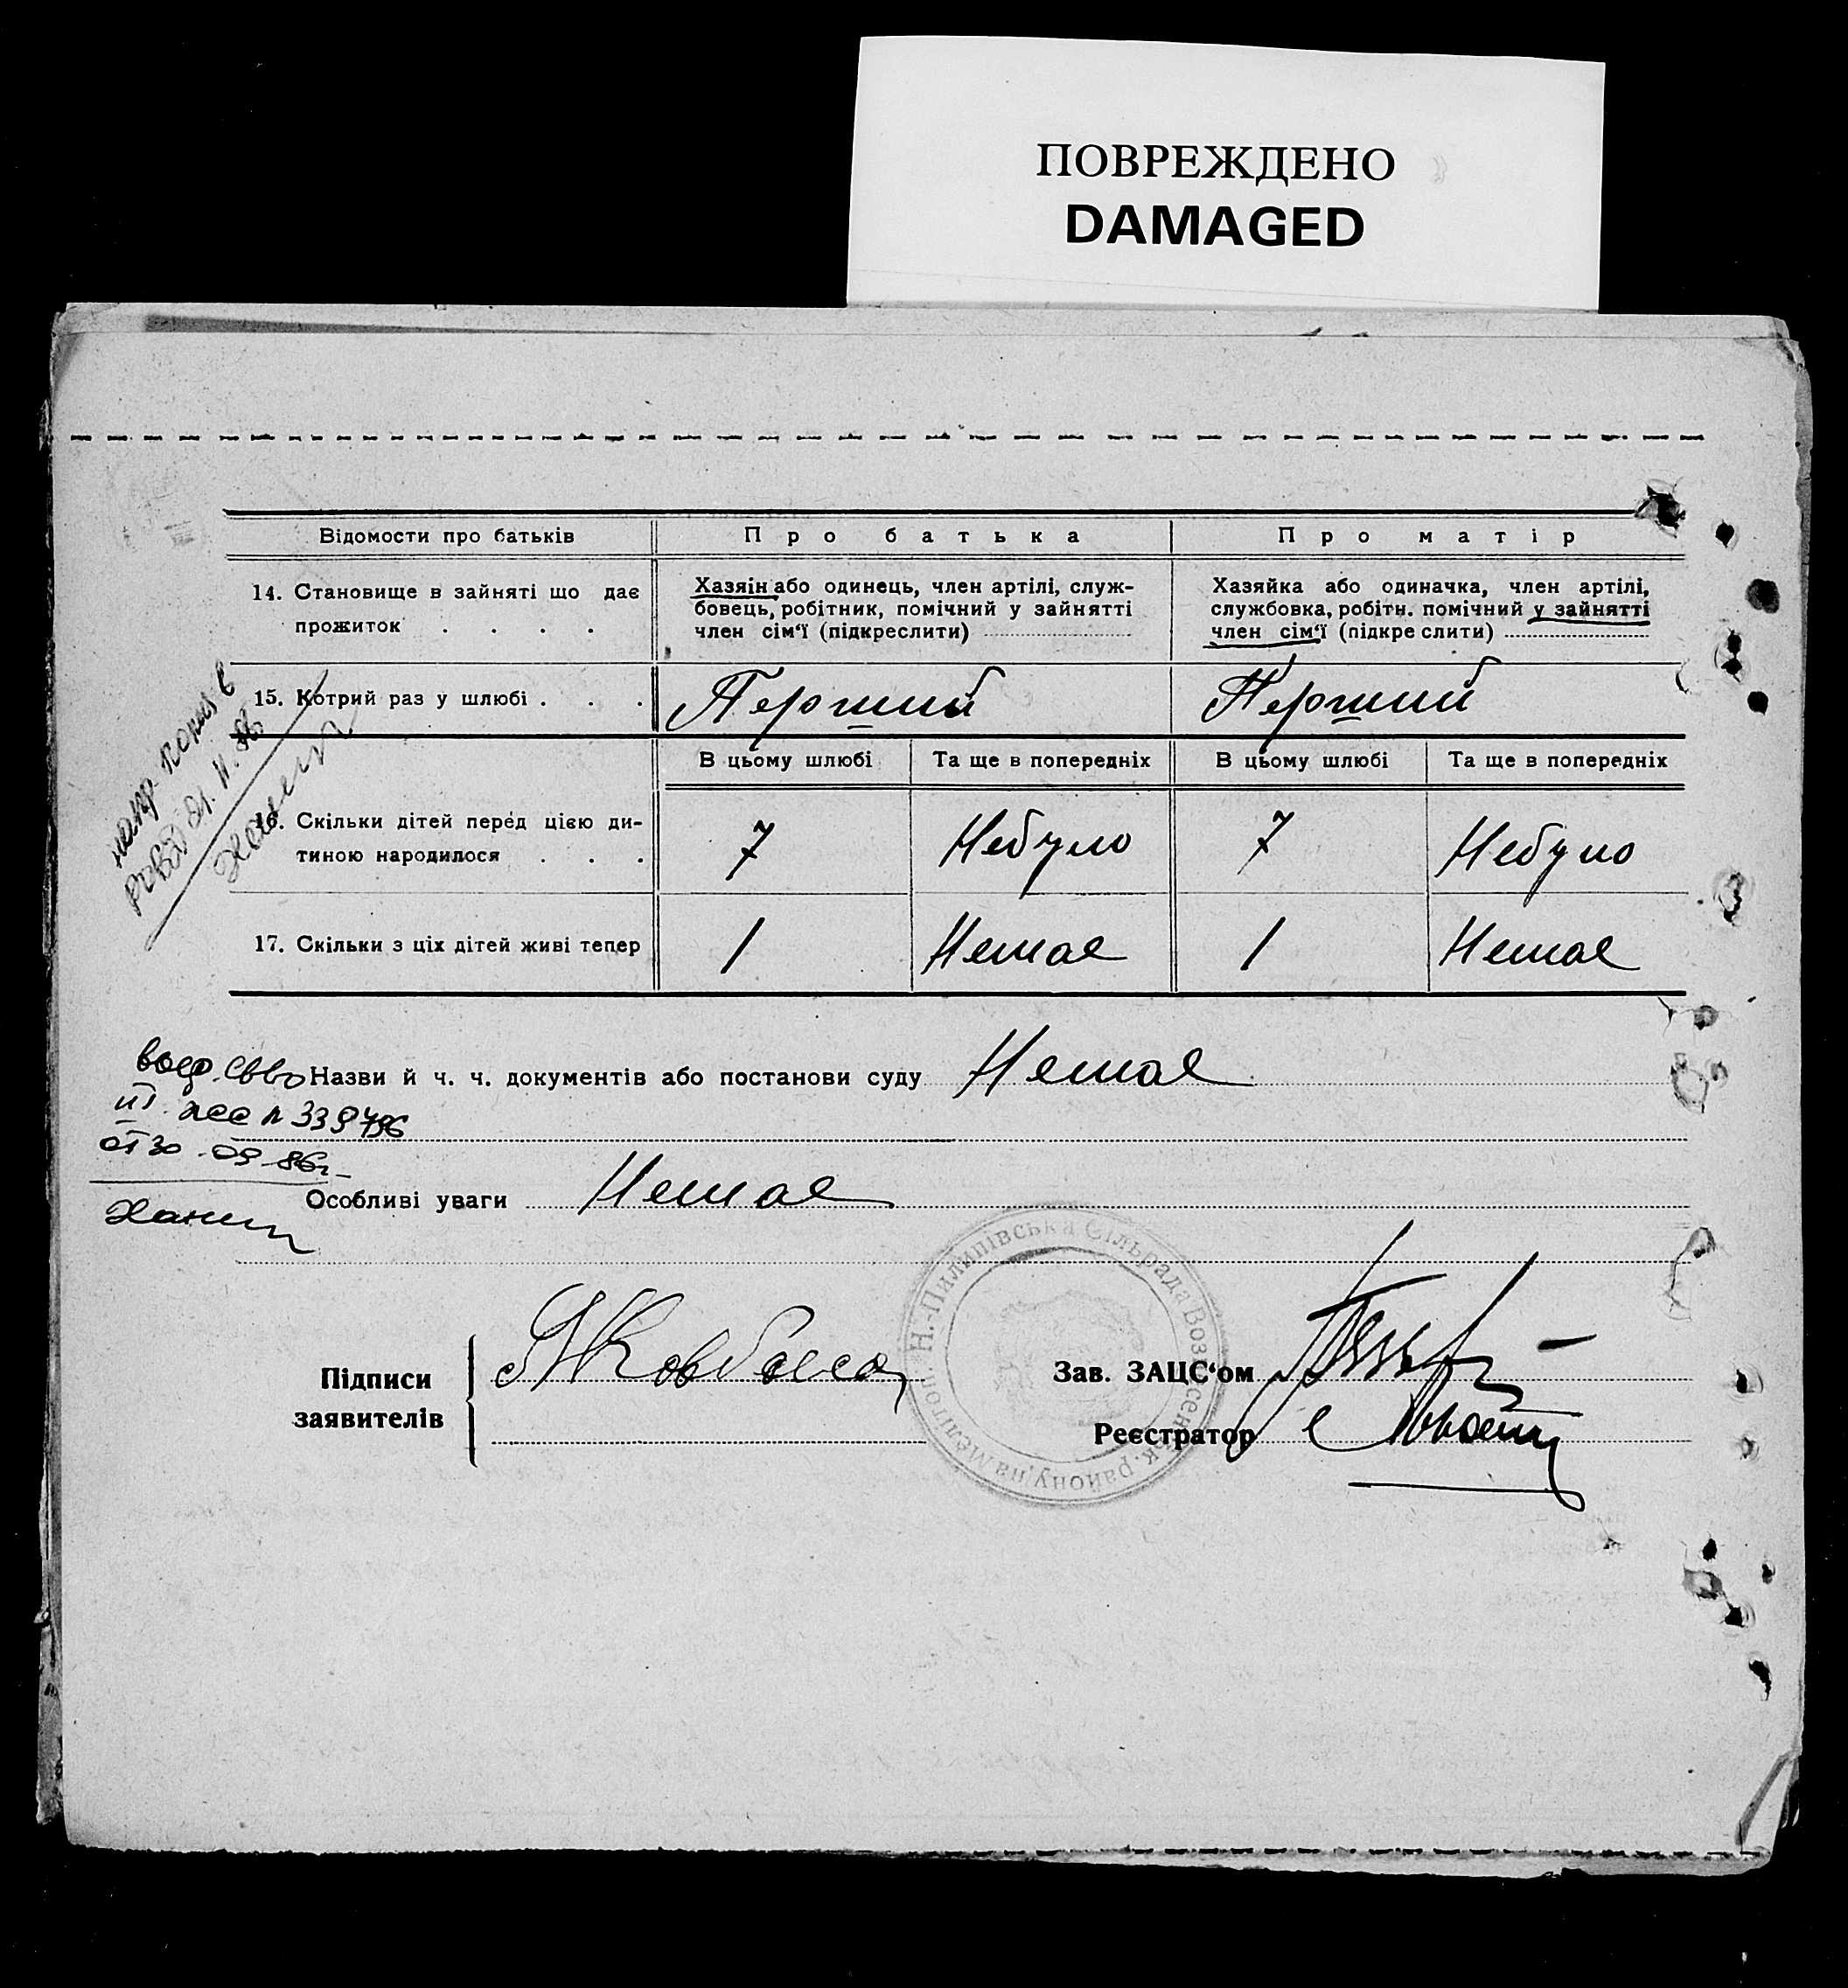 ПОВРЕЖДЕНО
DAMAGED
Відомости про батьків
Про батька
Про матір
14. Становище в зайняті що дає
прожиток . . . .
Хазяін або одинець, член артілі, служ-
бовець, робітник, помічний у зайнятті
член сім'ї (підкреслити)
Хазяйка або одиначка, член артілі,
службовка, робітн. помічний у зайнятті
член сім'ї (підкреслити)
15. Котрий раз у шлюбі . . .
Перший
Перший
В цьому шлюбі
Та ще в попередніх
В цьому шлюбі
Та ще в попередніх
16. Скільки дітей перед цією ди-
тиною народилося . . .
7
Небуло
7
Небуло
17. Скільки з ціх дітей живі тепер
1
Немає
1
Немає
Назви й ч. ч. документів або постанови суду Немає
от 30 09 86г
Особливі уваги Немає
Н.-Пилипівська Сільрада Вознесенськ. району, на Мелітоп.
Підписи
заявителів
Ковбаса
Зав. ЗАЦС'ом
Реєстратор